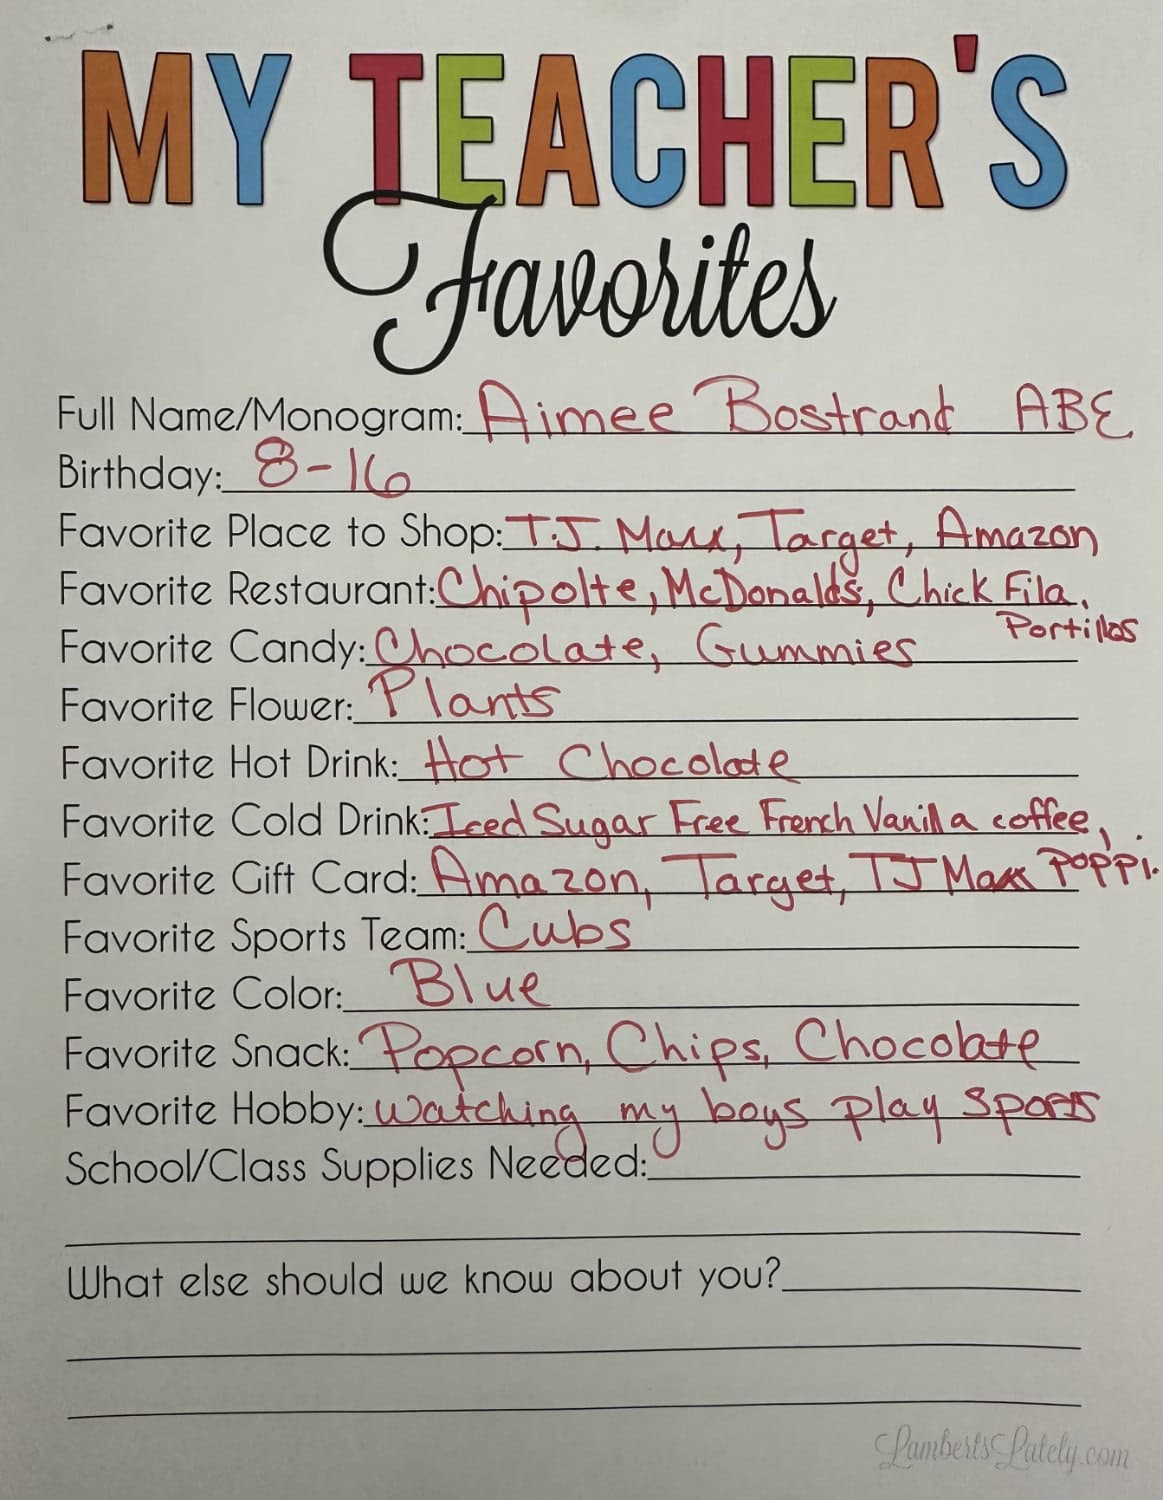 MY TEACHER'S
Favorites
Full Name/Monogram: Aimee Bostrand ABE
Birthday: 8-16
Favorite Place to Shop: T.J. Maxx, Target, Amazon
Favorite Restaurant: Chipolte, McDonalds, Chick Fila,
Portillos
Favorite Candy: Chocolate, Gummies
Favorite Flower: Plants
Favorite Hot Drink: Hot Chocolate
Favorite Cold Drink: Iced Sugar Free French Vanilla coffee,
Poppi.
Favorite Gift Card: Amazon, Target, TJ Maxx
Favorite Sports Team: Cubs
Favorite Color: Blue
Favorite Snack: Popcorn, Chips, Chocolate
Favorite Hobby: Watching my boys play sports
School/Class Supplies Needed:
What else should we know about you?
LambertsLately.com